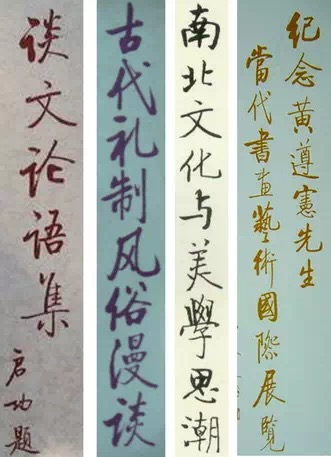 谈文论语集
启功题
古代礼制风俗漫谈
南北文化与美學思潮
纪念黄遵憲先生
當代书畫藝術國際展覧